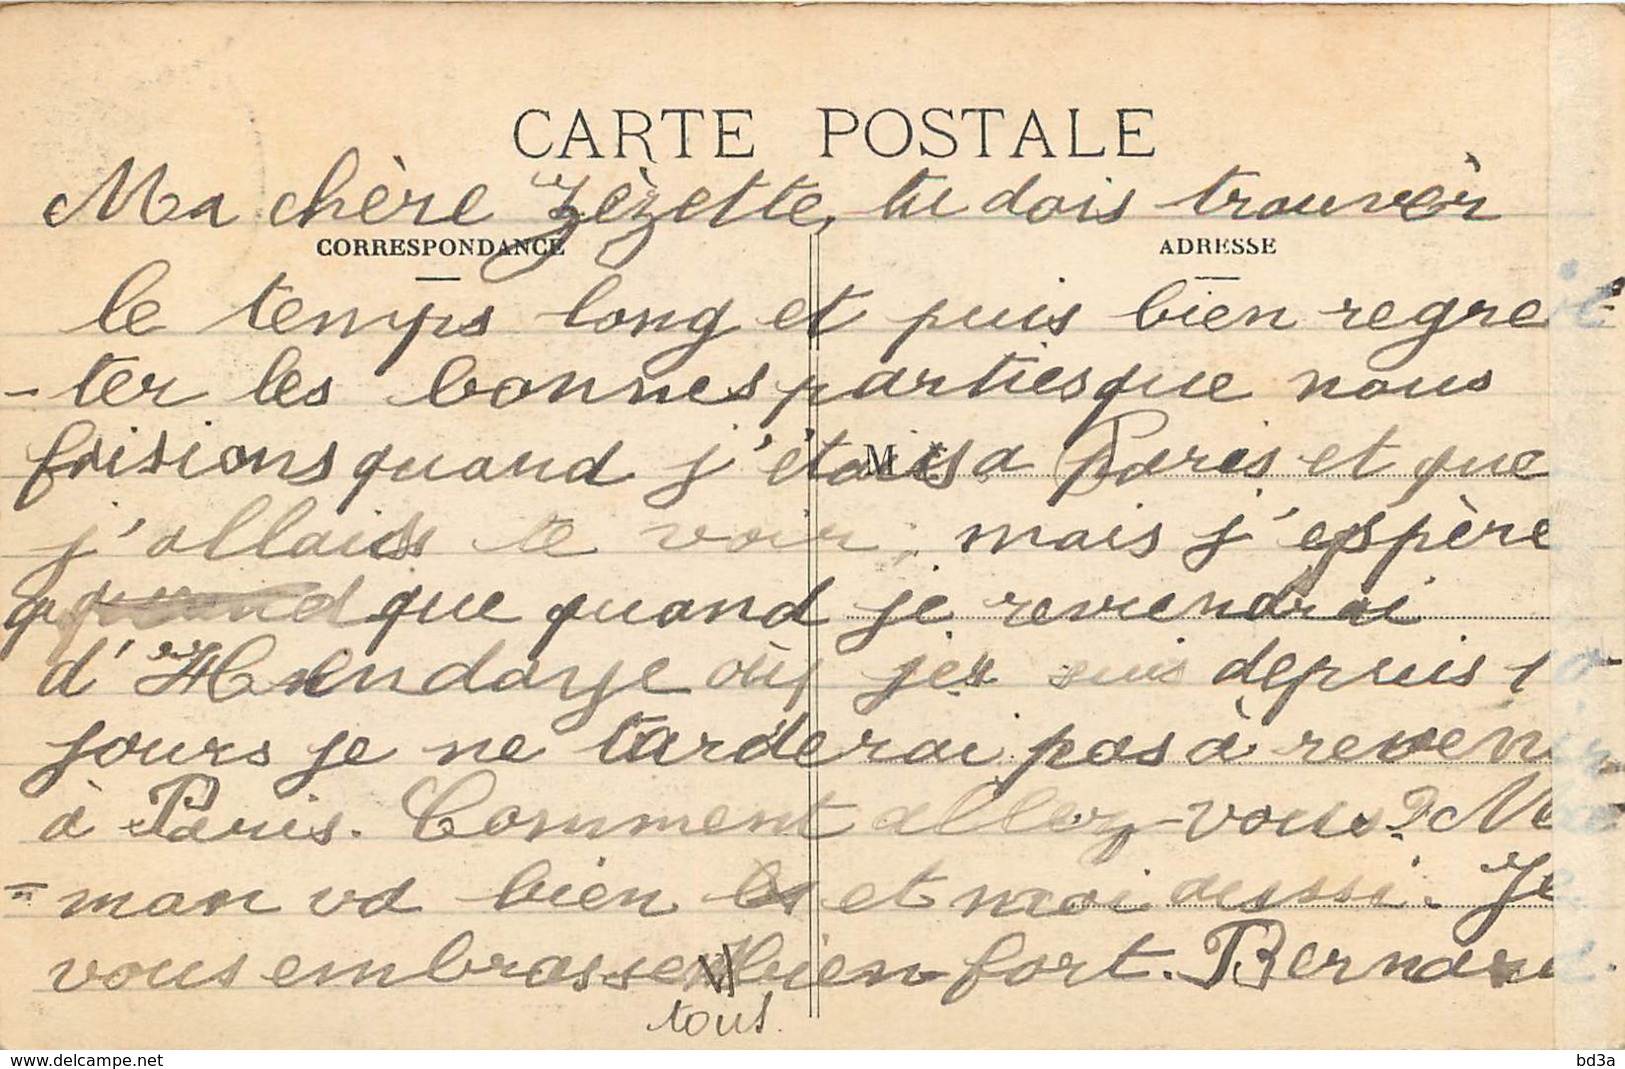 CARTE POSTALE
Ma chère Zèzette, tu dois trouver
CORRESPONDANCE
ADRESSE
le temps long et puis bien regre
-ter les bonnes parties que nous
faisions quand j'étais a Paris et que
M
j'allais te voir, mais j'espère
que quand je reviendrai
d'Hendaye où je suis depuis
jours je ne tarderai pas à reven
à Paris. Comment allez-vous?
=man va bien et moi aussi. Je
vous embrasse bien fort. Bernard
tous
www.delcampe.net
bd3a